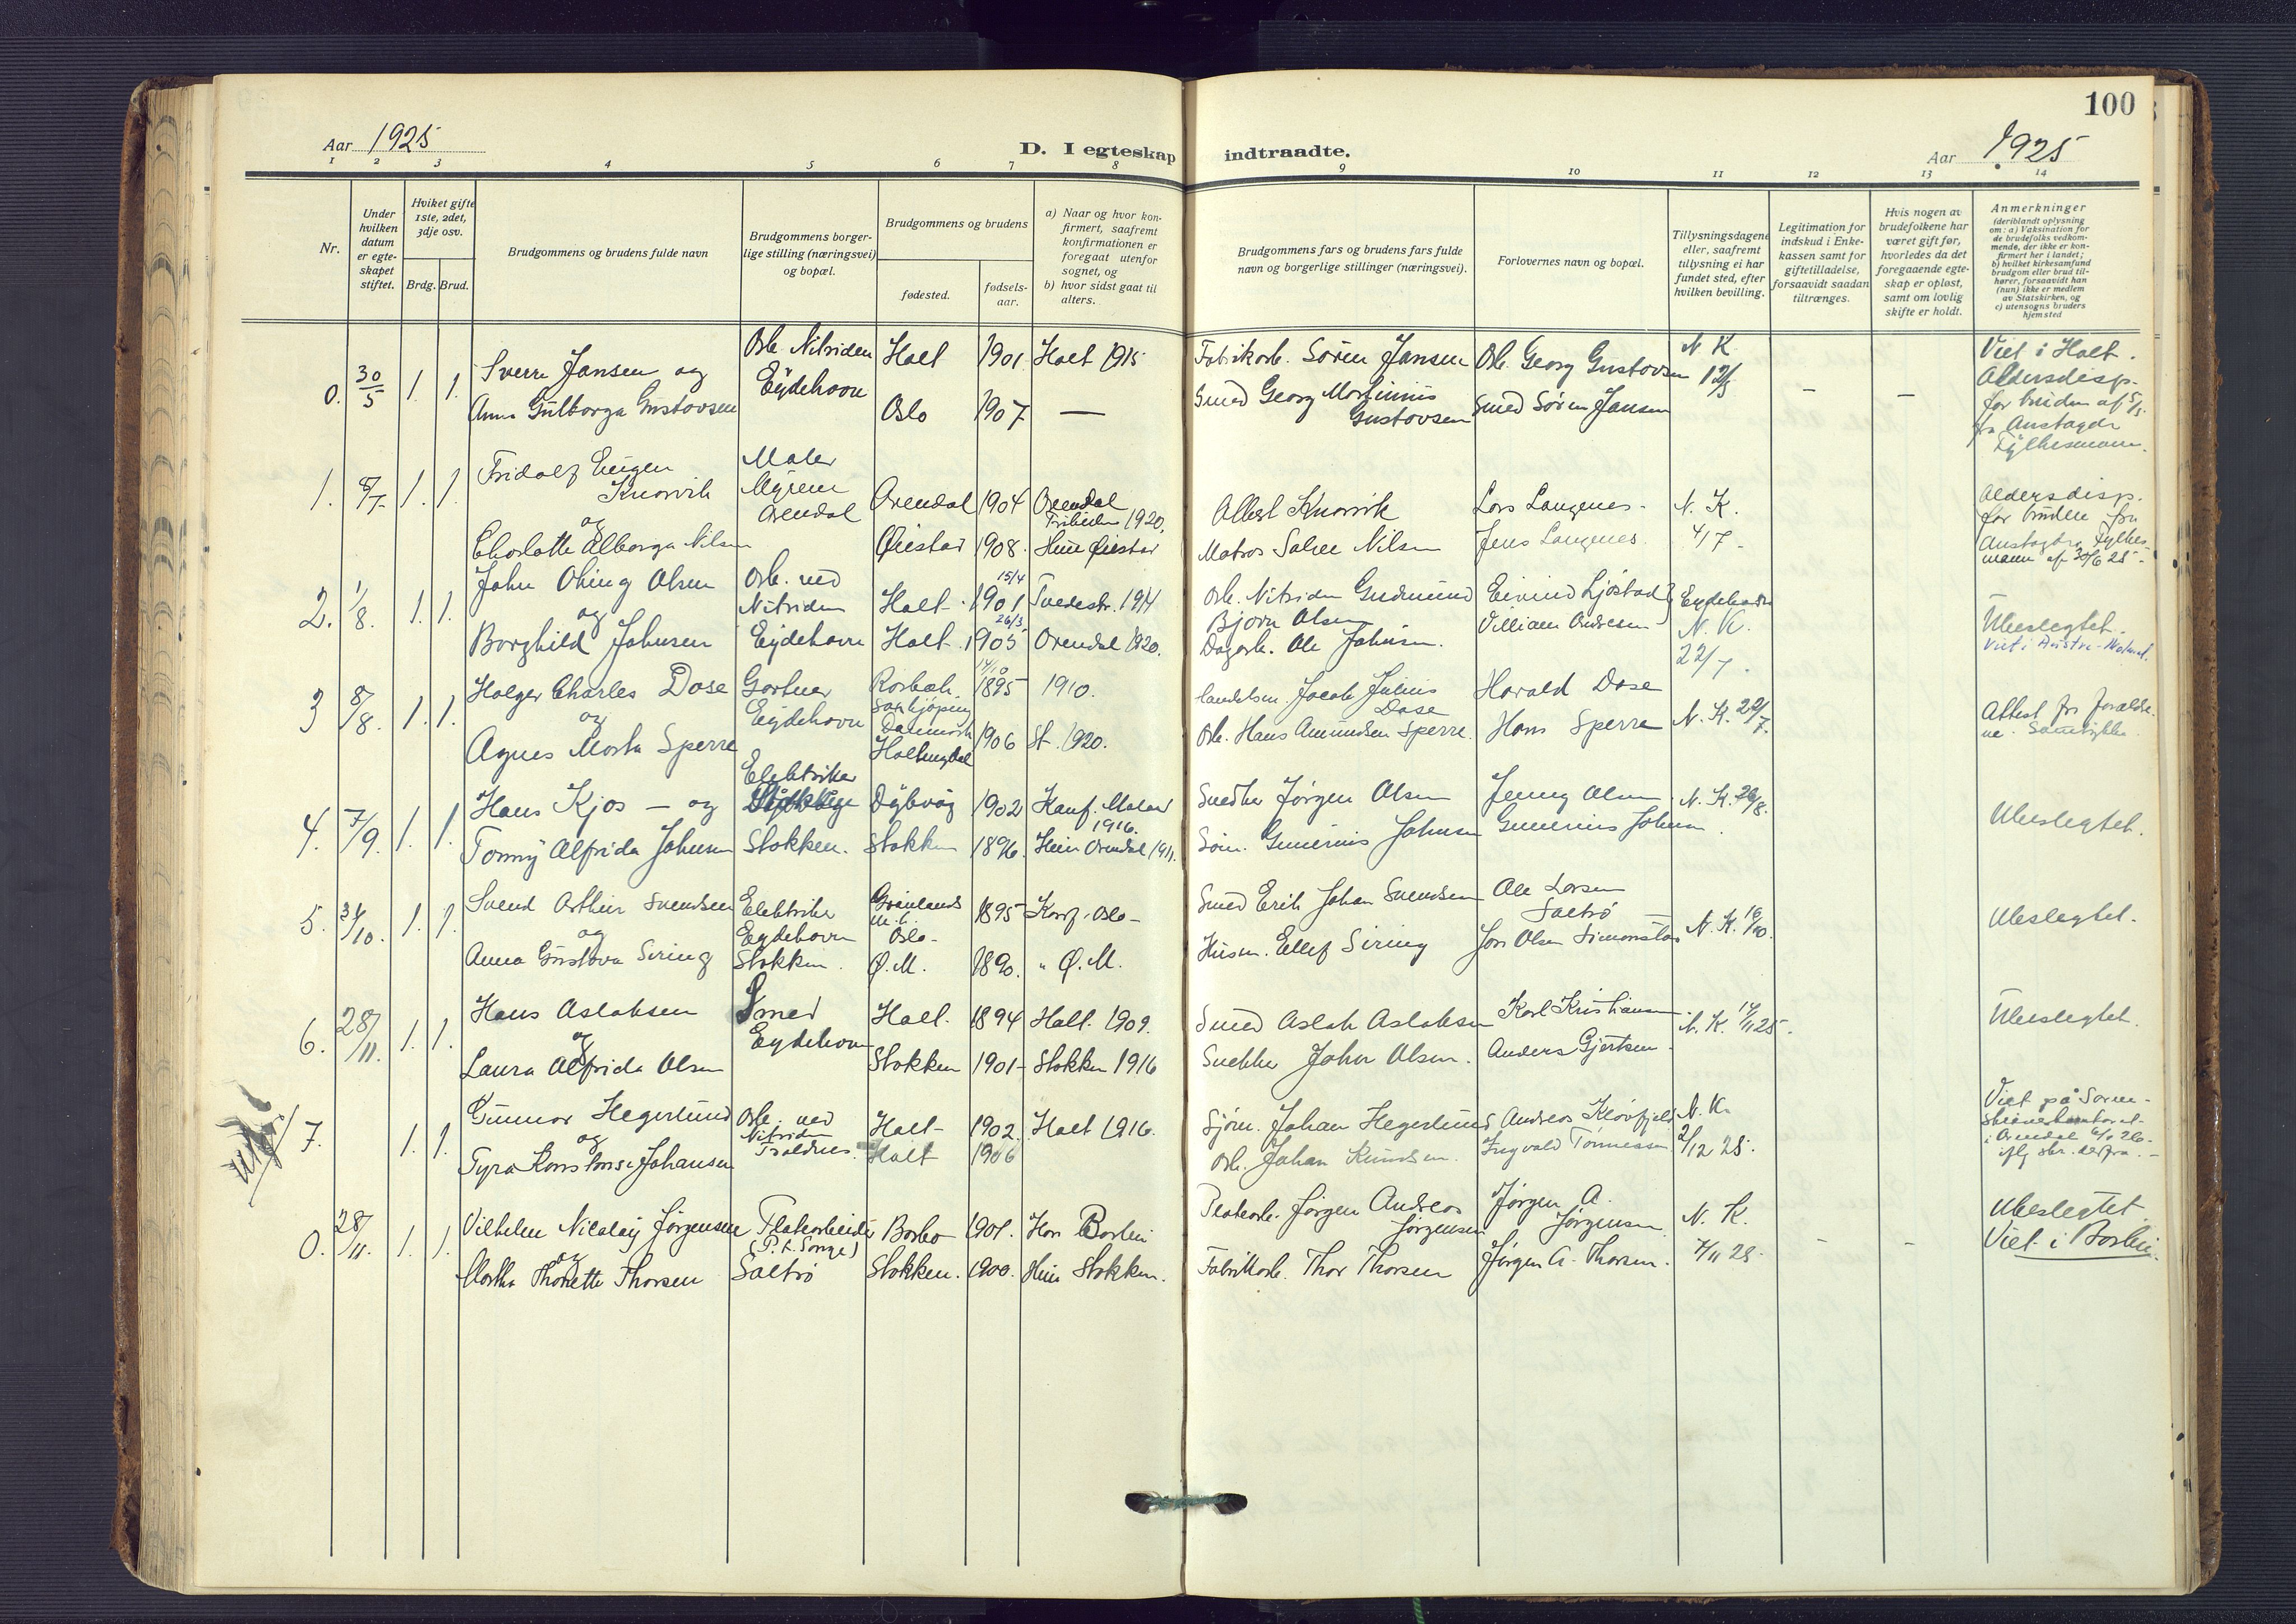 100
Aar 1925
D. I egteskap indtraadte.
Aar 1925
1 2 3 4 5 6 7 8 9 10 11 12 13 14
Nr.
Under hvilken datum er egteskapet stiftet.
Hvilket gifte 1ste, 2det, 3dje osv.
Brdg. Brud.
Brudgommens og brudens fulde navn
Brudgommens borgerlige stilling (næringsvei) og bopæl.
Brudgommens og brudens
fødested.
fødselsaar.
a) Naar og hvor konfirmert, saafremt konfirmationen er foregaat utenfor sognet, og
b) hvor sidst gaat til alters.
Brudgommens fars og brudens fars fulde navn og borgerlige stillinger (næringsvei).
Forlovernes navn og bopæl.
Tillysningsdagene eller, saafremt tillysning ei har fundet sted, efter hvilken bevilling.
Legitimation for indskud i Enkekassen samt for giftetilladelse, forsaavidt saadan tiltrænges.
Hvis nogen av brudefolkene har været gift før, hvorledes da det foregaaende egteskap er opløst, samt om lovlig skifte er holdt.
Anmerkninger
(deriblandt oplysning om: a) Vaksination for de brudefolks vedkommende, der ikke er konfirmert her i landet; b) hvilket kirkesamfund brudgom eller brud tilhører, forsaavidt han (hun) ikke er medlem av Statskirken, og c) utensogns bruders hjemsted
0. 30/5 1. 1. Sverre Jansen og Arb. Nitriden Eydehavn Holt 1901 Holt 1915 Fabrikarb. Søren Jansen Arb. Georg Gustavsen N. K. 12/5 – – Viet i Holt.
Anna Gulborga Gustavsen Oslo 1907 — Smed Georg Martinius Gustavsen Smed Søren Jansen Aldersdisp. for bruden af 5/5 fra Austagder Fylkesmann.
1. 8/7 1. 1. Fridolf Eugen Knarvik Maler Myrene Arendal Arendal 1904 Arendal 1920. Albert Knarvik Lars Langenes. N. K. Aldersdisp. for bruden fra
og Charlotte Alborga Nilsen Øiestad 1908. Hun Øiestad Matros Salve Nilsen Jens Langenes. 4/7 Austagder Fylkesmann af 30/6 25
2. 1/8. 1. 1. John Oking Olsen Arb. ved Nitriden Holt 15/4 1901 Tvedestr. 1914 Arb. Nitriden Gudmund Bjørn Olsen Eivind Ljøstad Eydehavn
og Borghild Johnsen Eydehavn Holt 26/3 1905 Arendal 1920. Dagarb. Ole Johnsen. Villiam Andresen N. K. 22/7. Ubeslegtet. Viet i Austre-Moland.
3 8/8. 1. 1. Holger Charles Dose Gartner Eydehavn Danmark 14/10 1895 1910. Jacob Julius Dose Harald Dose N. K. 22/7.
og Agnes Marta Sperre 1906 St. 1920. Arb. Hans Amundsen Sperre. Hans Sperre Attest fra forældrene. Samtykke
4. 7/9. 1. 1. Hans Kjos – og Elektriker Dybvåg 1902 Konf. 1916. Snedker Jørgen Olsen Jenny Olsen. N. K. 26/8. Ubeslegtet.
Tomny Alfrida Johnsen Stokken. Stokken 1896. Hun Arendal 1911. Gunerius Johnsen Gunerius Johnsen.
5. 31/10. 1. 1. Svend Arthur Svendsen Elektriker Grønlands m.t. Oslo 1895 Konf. Oslo Smed Erik Johan Svendsen Ole Larsen Saltrø N. K. 16/10. Ubeslegtet.
og Anna Gustava Siring Eydehavn Stokken. Ø. M. 1890. " Ø. M. Husm. Ellef Siring Jon Olsen Simonstad
6. 28/11. 1. 1. Hans Aslaksen Smed Eydehavn Holt. 1894 Holt. 1909. Smed Aslak Aslaksen Karl Kristiansen N. K. 14/11 25. Ubeslegtet.
og Laura Alfrida Olsen Stokken 1901 Stokken 1916 Snekker Johan Olsen. Anders Gjertsen.
utgår
7. 1. 1. Gunnar Hegerlund Arb. ved Nitriden Holt 1902. Holt 1916. Sjøm. Johan Hegerlund Andreas Kløvfjeld N. K. Viet på Sorenskriverkontoret
og Tyra Konstanse Johansen Holt 1906 Arb. Johan Knudsen. Ingvald Tønnessen 2/12 25. i Arendal 6/1 26. iflg skr. derfra.
0. 28/11. 1. 1. Vilhelm Nicolay Jørgensen Platearbeider (P.t. Songe) Barbo 1901. Han Barbu Platearb. Jørgen Andreas Jørgensen Jørgen A. Jørgensen N. K. – – Ubeslegtet.
og Martha Thorette Thorsen Saltrø Stokken. 1900. Hun Stokken. Fabrikarb. Thor Thorsen Jørgen A. Thorsen. 7/11 25 Viet i Barbu.